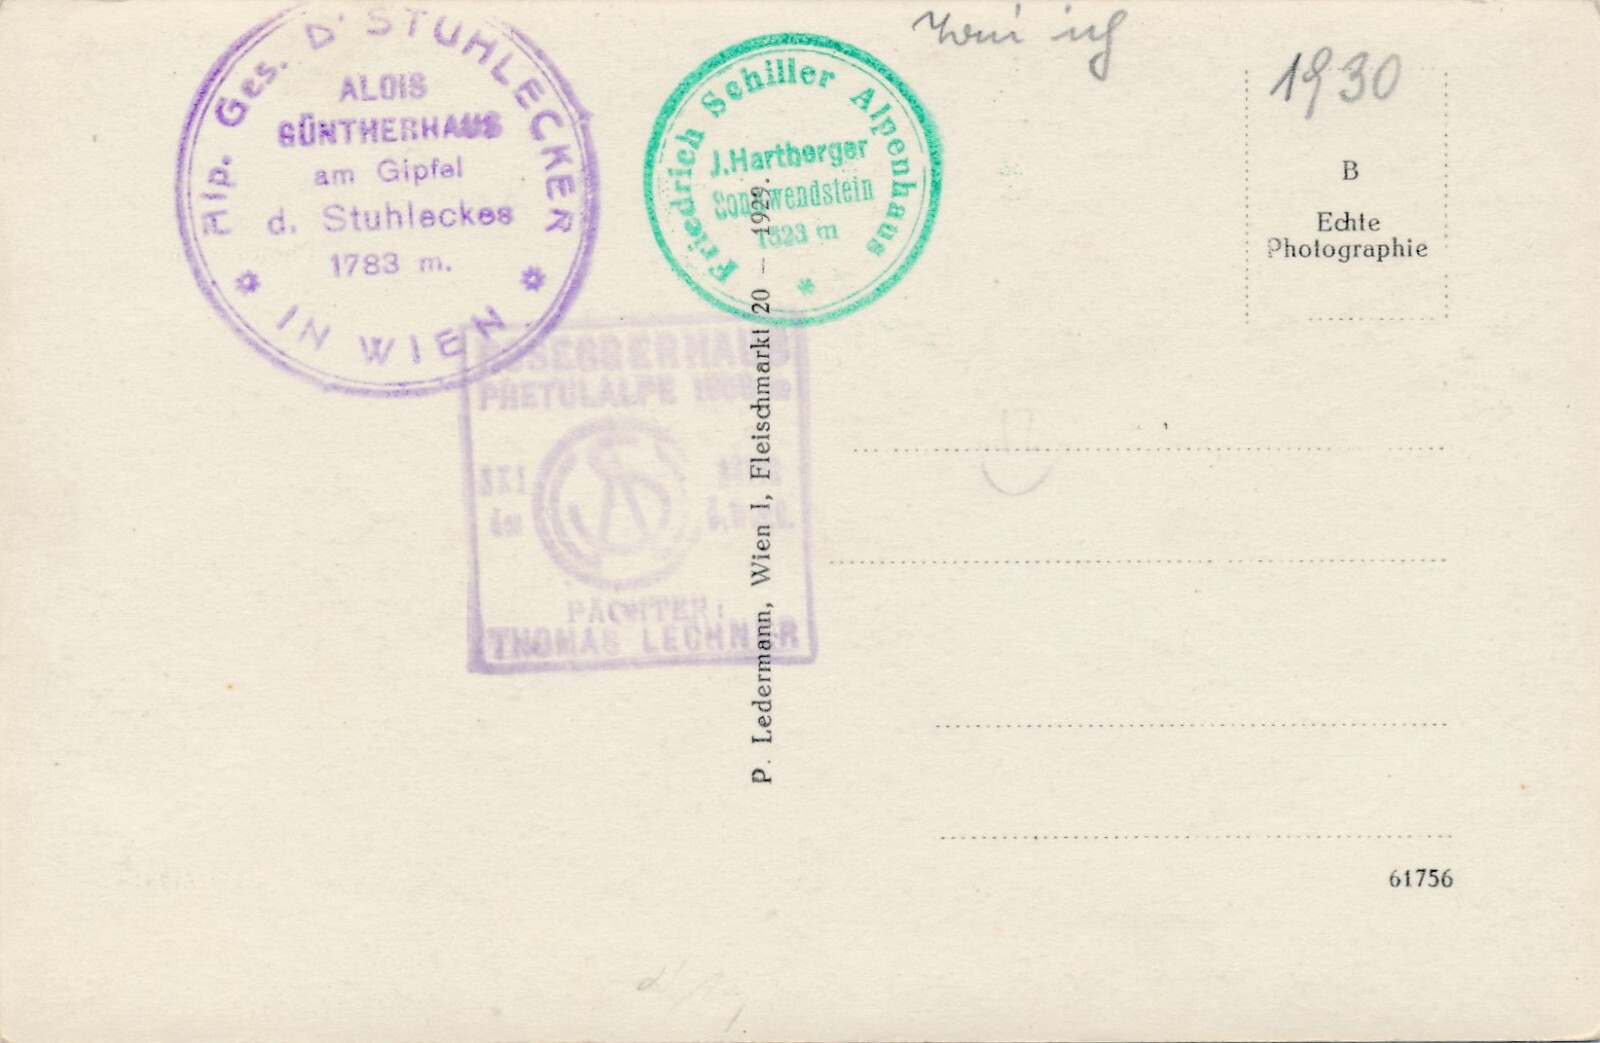 Alp. Ges. D' STUHLECKER
ALOIS
GÜNTHERHAUS
am Gipfel
d. Stuhleckes
1783 m.
* IN WIEN *
Friedrich Schiller Alpenhaus
J. Hartberger
Sonnwendstein
1523 m
*
ich
1930
B
Echte
Photographie
ROSEGGERHAUS
PRETULALPE
SKI
der
PÄCHTER:
THOMAS LECHNER
P. Ledermann, Wien I, Fleischmarkt 20 — 1929.
61756